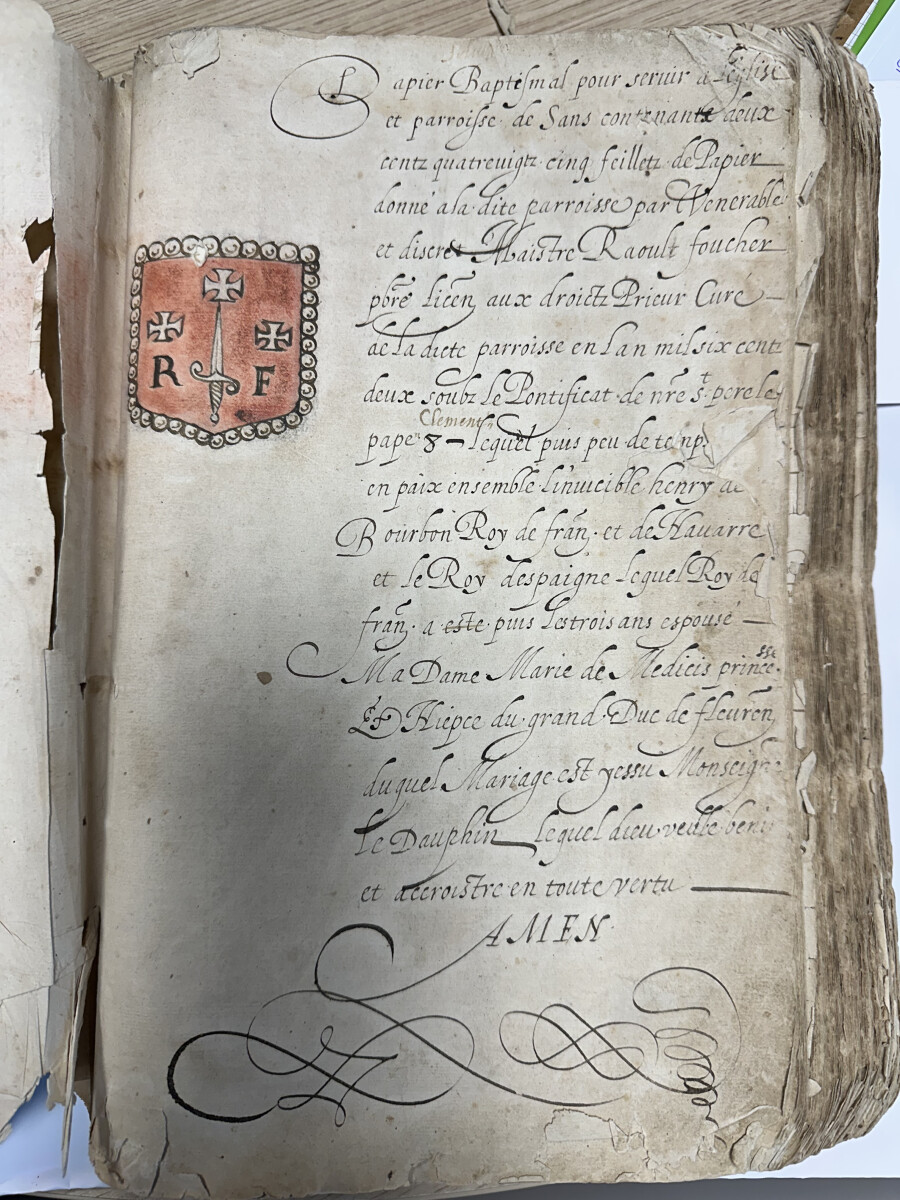 Papier Baptismal pour servir a leglise
et parroisse de Sans contenante deux
centz quatrevigtz cinq feilletz de Papier
donné a la dite parroisse par Venerable
et discret Maistre Raoult foucher
pbre licen aux droictz Prieur Cure
de la dicte parroisse en lan mil six centz
deux soubz le Pontificat de nre st pere le
Clement
pape 8 lequel puis peu de temps
en paix ensemble linvicible henry de
Bourbon Roy de fran. et de Navarre
et le Roy despaigne lequel Roy de
fran. a este puis les trois ans espousé
Ma Dame Marie de Medicis princesse
Et Niepce du grand Duc de fleuren
duquel Mariage est yessu Monseigr
le Dauphin lequel dieu veulle benir
et accroistre en toute vertu
AMEN
R F